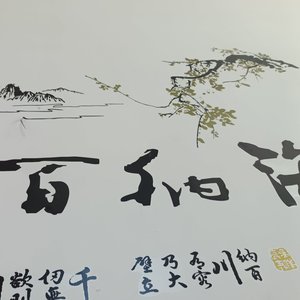 海纳百
纳百
川
有容
乃大
壁立
千
仞
欲